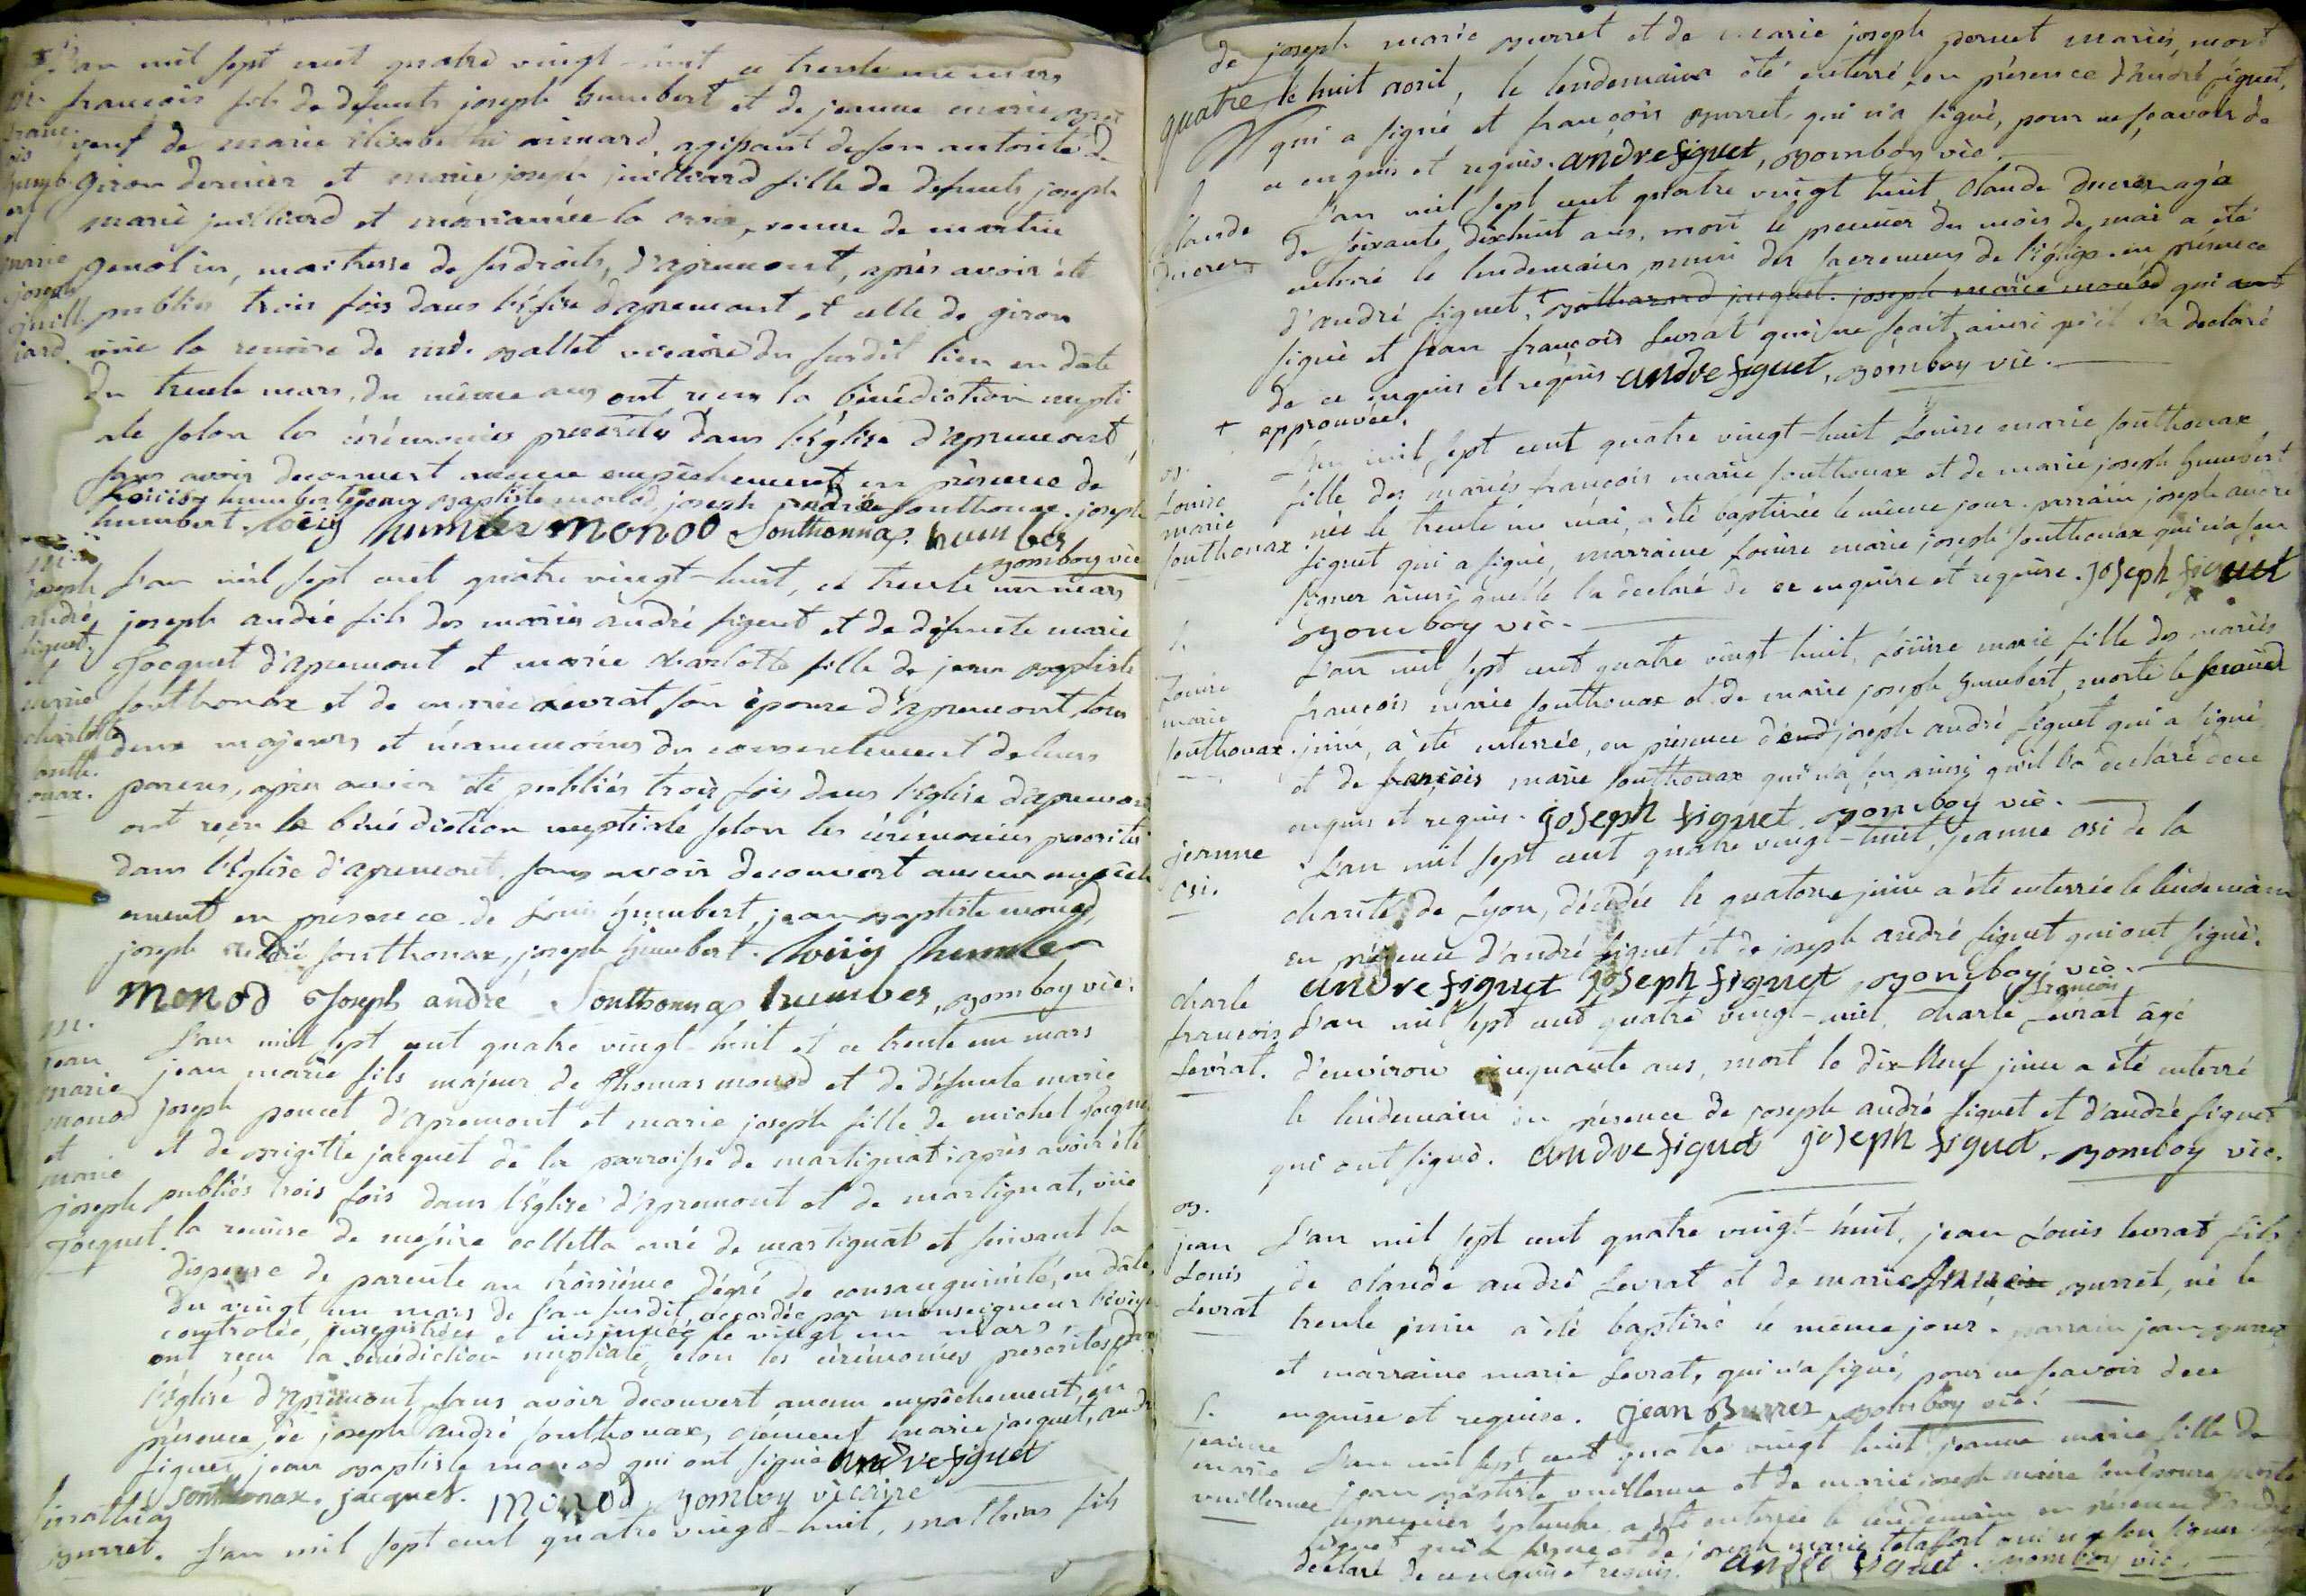 L'an mil sept cent quatre vingt-huit ce trente un mars
françois fils de défunts joseph humbert et de jeanne marie
veuf de marie Elisabeth aimard, agissant de son autorité de
giron dernier et marie joseph juilliard fille de défunts joseph
marie juilliard et marianne la croix, veuve de martin
genolin, maitresse de ses droits, d'apremont, après avoir été
publiés trois fois dans l'église d'apremont et celle de giron
vüe la remise de mr. ballet vicaire du susdit lieu en date
du trente mars, du même ans ont reçu la bénédiction nupti
ale selon les cérémonies prescrites dans l'église d'apremont,
sans avoir decouvert aucun empêchement en présence de
humbert, jean baptiste monod, joseph andré southonax, joseph
humbert. loüis humber monod Southonnax humber
bomboy vic
m.
franc
ois
humb
ert
et
marie
joseph
juill
iard.
L'an mil sept cent quatre vingt-huit, ce trente un mars
joseph andré fils des mariés andré figuet et de défunte marie
Jacquet d'apremont et marie charlotte fille de jean baptiste
southonax et de marie levrat son épouse d'apremont, tous
deux majeurs et neanmoins du consentement de leurs
parens, après avoir été publiés trois fois dans l'église d'apremont
ont reçu la bénédiction nuptiale selon les cérémonies prescrites
dans l'église d'apremont, sans avoir decouvert aucun empêch
ement en présence de Louis humbert, jean baptiste monod,
joseph andré southonax, joseph humbert. loüis humber
monod Joseph andré Southonnax humber, bomboy vic.
m.
joseph
andré
figuet,
et
marie
charlotte
south
onax.
L'an mil sept cent quatre vingt-huit et ce trente un mars
jean marie fils majeur de thomas monod et de défunte marie
joseph poncet d'apremont et marie joseph fille de michel jacquet
et de brigitte jacquet de la parroisse de martignat: après avoir été
publiés trois fois dans l'église d'apremont et de martignat, vüe
la remise de messire colletta curé de martignat et suivant la
dispense de parenté au troisième dégré de consanguinité, en date
du vingt un mars de l'an susdit, accordée par monseigneur l'évêque
controlée, enregistrée et insinuée le vingt un mars,
ont reçu la bénédiction nuptiale selon les cérémonies prescrites dans
l'église d'apremont, sans avoir decouvert aucun empêchement, en
présence de joseph andré southonax, clément marie jacquet, andré
figuet, jean baptiste monod qui ont signé andre figuet
Southonax. jacquet. monod, bomboy vicaire
m.
jean
marie
monod
et
marie
joseph
jacquet.
L'an mil sept cent quatre vingt-huit, mathias fils
mathias
burret.
de joseph marie burret et de marie joseph pernet mariés, mort
quatre le huit avril, le lendemain a été enterré, en présence d'andré figuet,
qui a signé et françois burret qui n'a signé, pour ne sçavoir de
ce enquis et requis. andre figuet, bomboy vic.
L'an mil sept cent quatre vingt huit, Claude ducret agé
de soixante dixhuit ans, mort le premier du mois de mai a été
enterré le lendemain muni des sacremens de l'église. en présence
d'andré figuet, + balthazard jacquet. joseph marie monod qui ont
signé et jean françois Levrat qui ne sçait, ainsi qu'il l'a declaré
de ce enquis et requis andre figuet, bomboy vic.
+ approuvée.
s.
Claude
ducret
L'an mil sept cent quatre vingt-huit Louise marie southonax
fille des mariés françois marie southonax et de marie joseph humbert
née le trente un mai, a été baptisée le même jour. parrain joseph andre
figuet qui a signé, marraine Louise marie joseph southonax qui n'a seu
signer ainsi quelle la declaré de ce enquise et requise. joseph figuet
bomboy vic.
b.
Louise
marie
southonax
L'an mil sept cent quatre vingt-huit, Loüise marie fille des mariés
françois marie southonax et de marie joseph humbert, morte le second
juin, a été enterrée, en présence d'and joseph andré figuet qui a signé,
et de françois marie southonax qui n'a seu ainsi qu'il l'a declaré de ce
enquis et requis. joseph figuet bomboy vic.
s.
Louise
marie
southonax.
L'an mil sept cent quatre vingt-huit, jeanne osi de la
charité de Lyon, décédée le quatorze juin a été enterrée le lendemain
en présence d'andré figuet et de joseph andré figuet qui ont signé.
andre figuet joseph figuet bomboy vic.
jeanne
osi.
L'an mil sept cent quatre vingt-huit, charle françois Levrat âgé
d'environ cinquante ans, mort le dix neuf juin a été enterré
le lendemain en présence de joseph andré figuet et d'andré figuet
qui ont signé. andre figuet joseph figuet, bomboy vic.
charle
françois
Levrat.
L'an mil sept cent quatre vingt-huit, jean Louis levrat fils
de claude andré Levrat et de marie burret, né le
trente juin a été baptisé le même jour. parrain jean burret
et marraine marie Levrat, qui n'a signé, pour ne sçavoir de ce
enquise et requise. jean Burret bomboy vic.
b.
jean
Louis
Levrat
L'an mil sept cent quatre vingt huit jeanne marie fille de
jean baptiste vuillerme et de marie joseph morte
le premier septembre a été enterrée le lendemain en présence d'andré
figuet qui a signé et de joseph marie qui n'a seu signer
déclaré de ce enquis et requis. andre figuet. bomboy vic.
s.
jeanne
marie
vuillerme